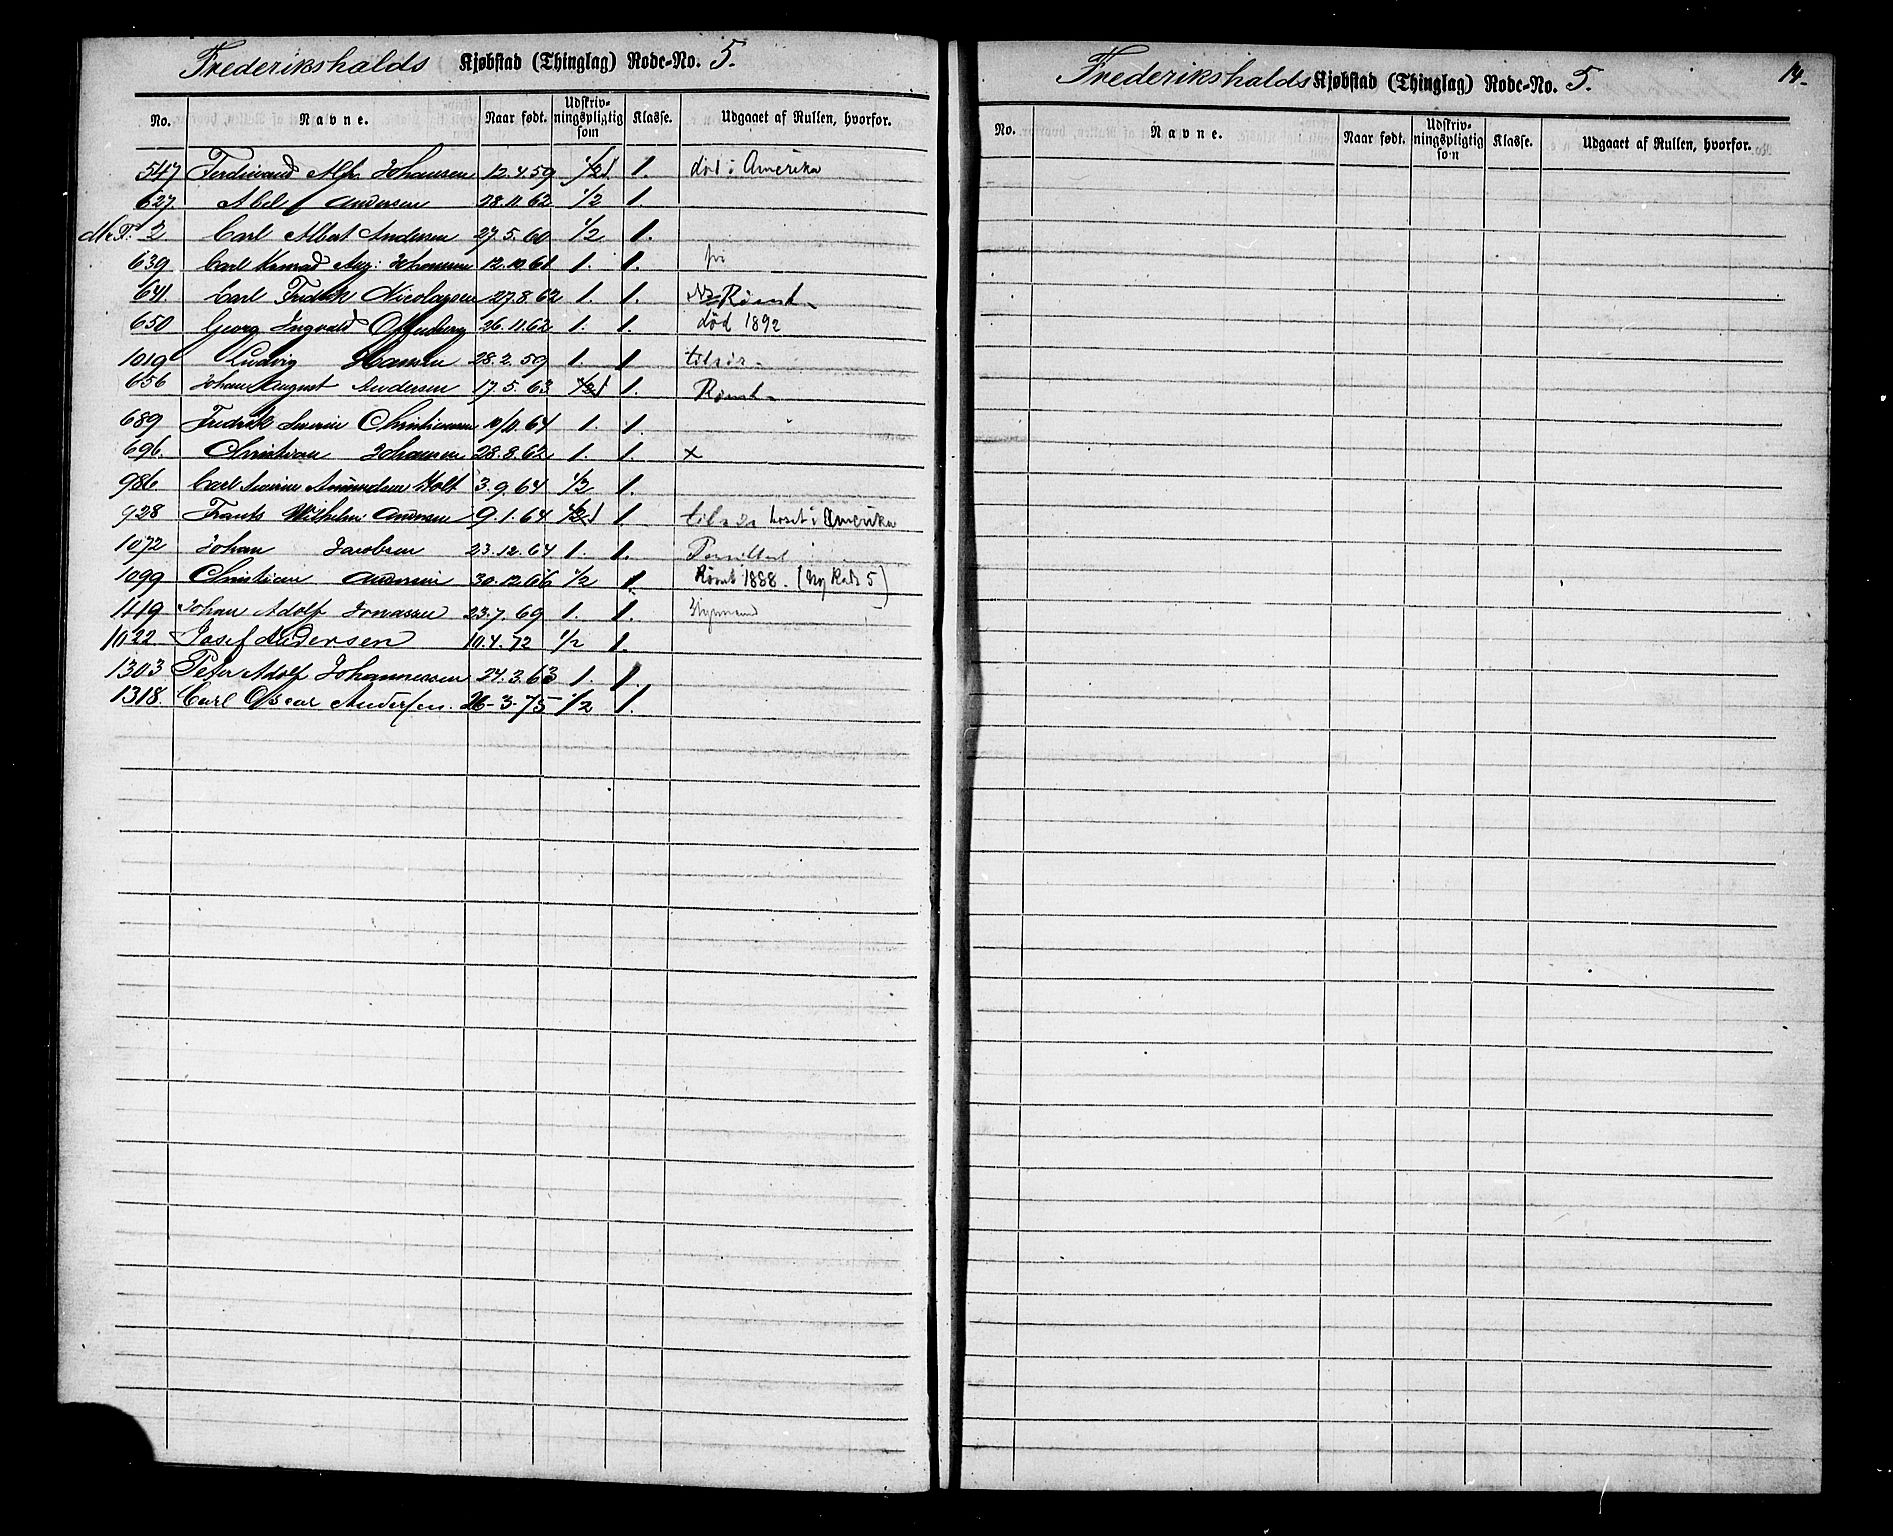 Frederikshalds Kjøbstad (Thinglag) Rode-No. 5.
No. Navne. Naar født. Udskrivningspligtig som Klasse. Udgaaet af Rullen, hvorfor.
547 Ferdinand Alfr. Johansen 12.4.59 1/2 1 1. død i Amerika
627 Abel Andersen 28.11.62 1/2 1.
2 Carl Albert Andersen 27.5.60 1/2 1.
639 Carl Konrad Aug: Johansen 12.10.61 1. 1. fri
641 Carl Fredrik Nicolaysen 27.8.62 1. 1. Rømt
650 Georg Ingvald 26.11.62 1. 1. død 1892
1019 Ludvig Hansen 28.2.59 1. 1.
656 Johan August Andersen 17.5.63 1/2 1 1. Rømt
689 Fredrik Severin Christiansen 10/11 64 1. 1.
696. Christian Johansen 28.8.62 1. 1. x
986 Carl Severin Amundsen Holt 3.9.64 1/2 1.
928 Frants Wilhelm Andersen 9.1.64 1/2 1 1. i Amerika
1072 Johan Jacobsen 23.12.64 1. 1.
1099 Christian Andersen 30.12.66 1/2 1. Rømt 1888. (Ny Rode 5)
1119 Johan Adolf Jonassen 23.7.69 1. 1.
1022 Josef Andersen 10.4.72 1/2 1.
1303 Peter Adolf Johannessen 24.3.63 1. 1.
1318. Carl Oscar Andersen. 26-3-75- 1/2 1.
Frederikshalds Kjøbstad (Thinglag) Rode-No. 5. 14.
No. Navne. Naar født. Udskrivningspligtig som Klasse. Udgaaet af Rullen, hvorfor.